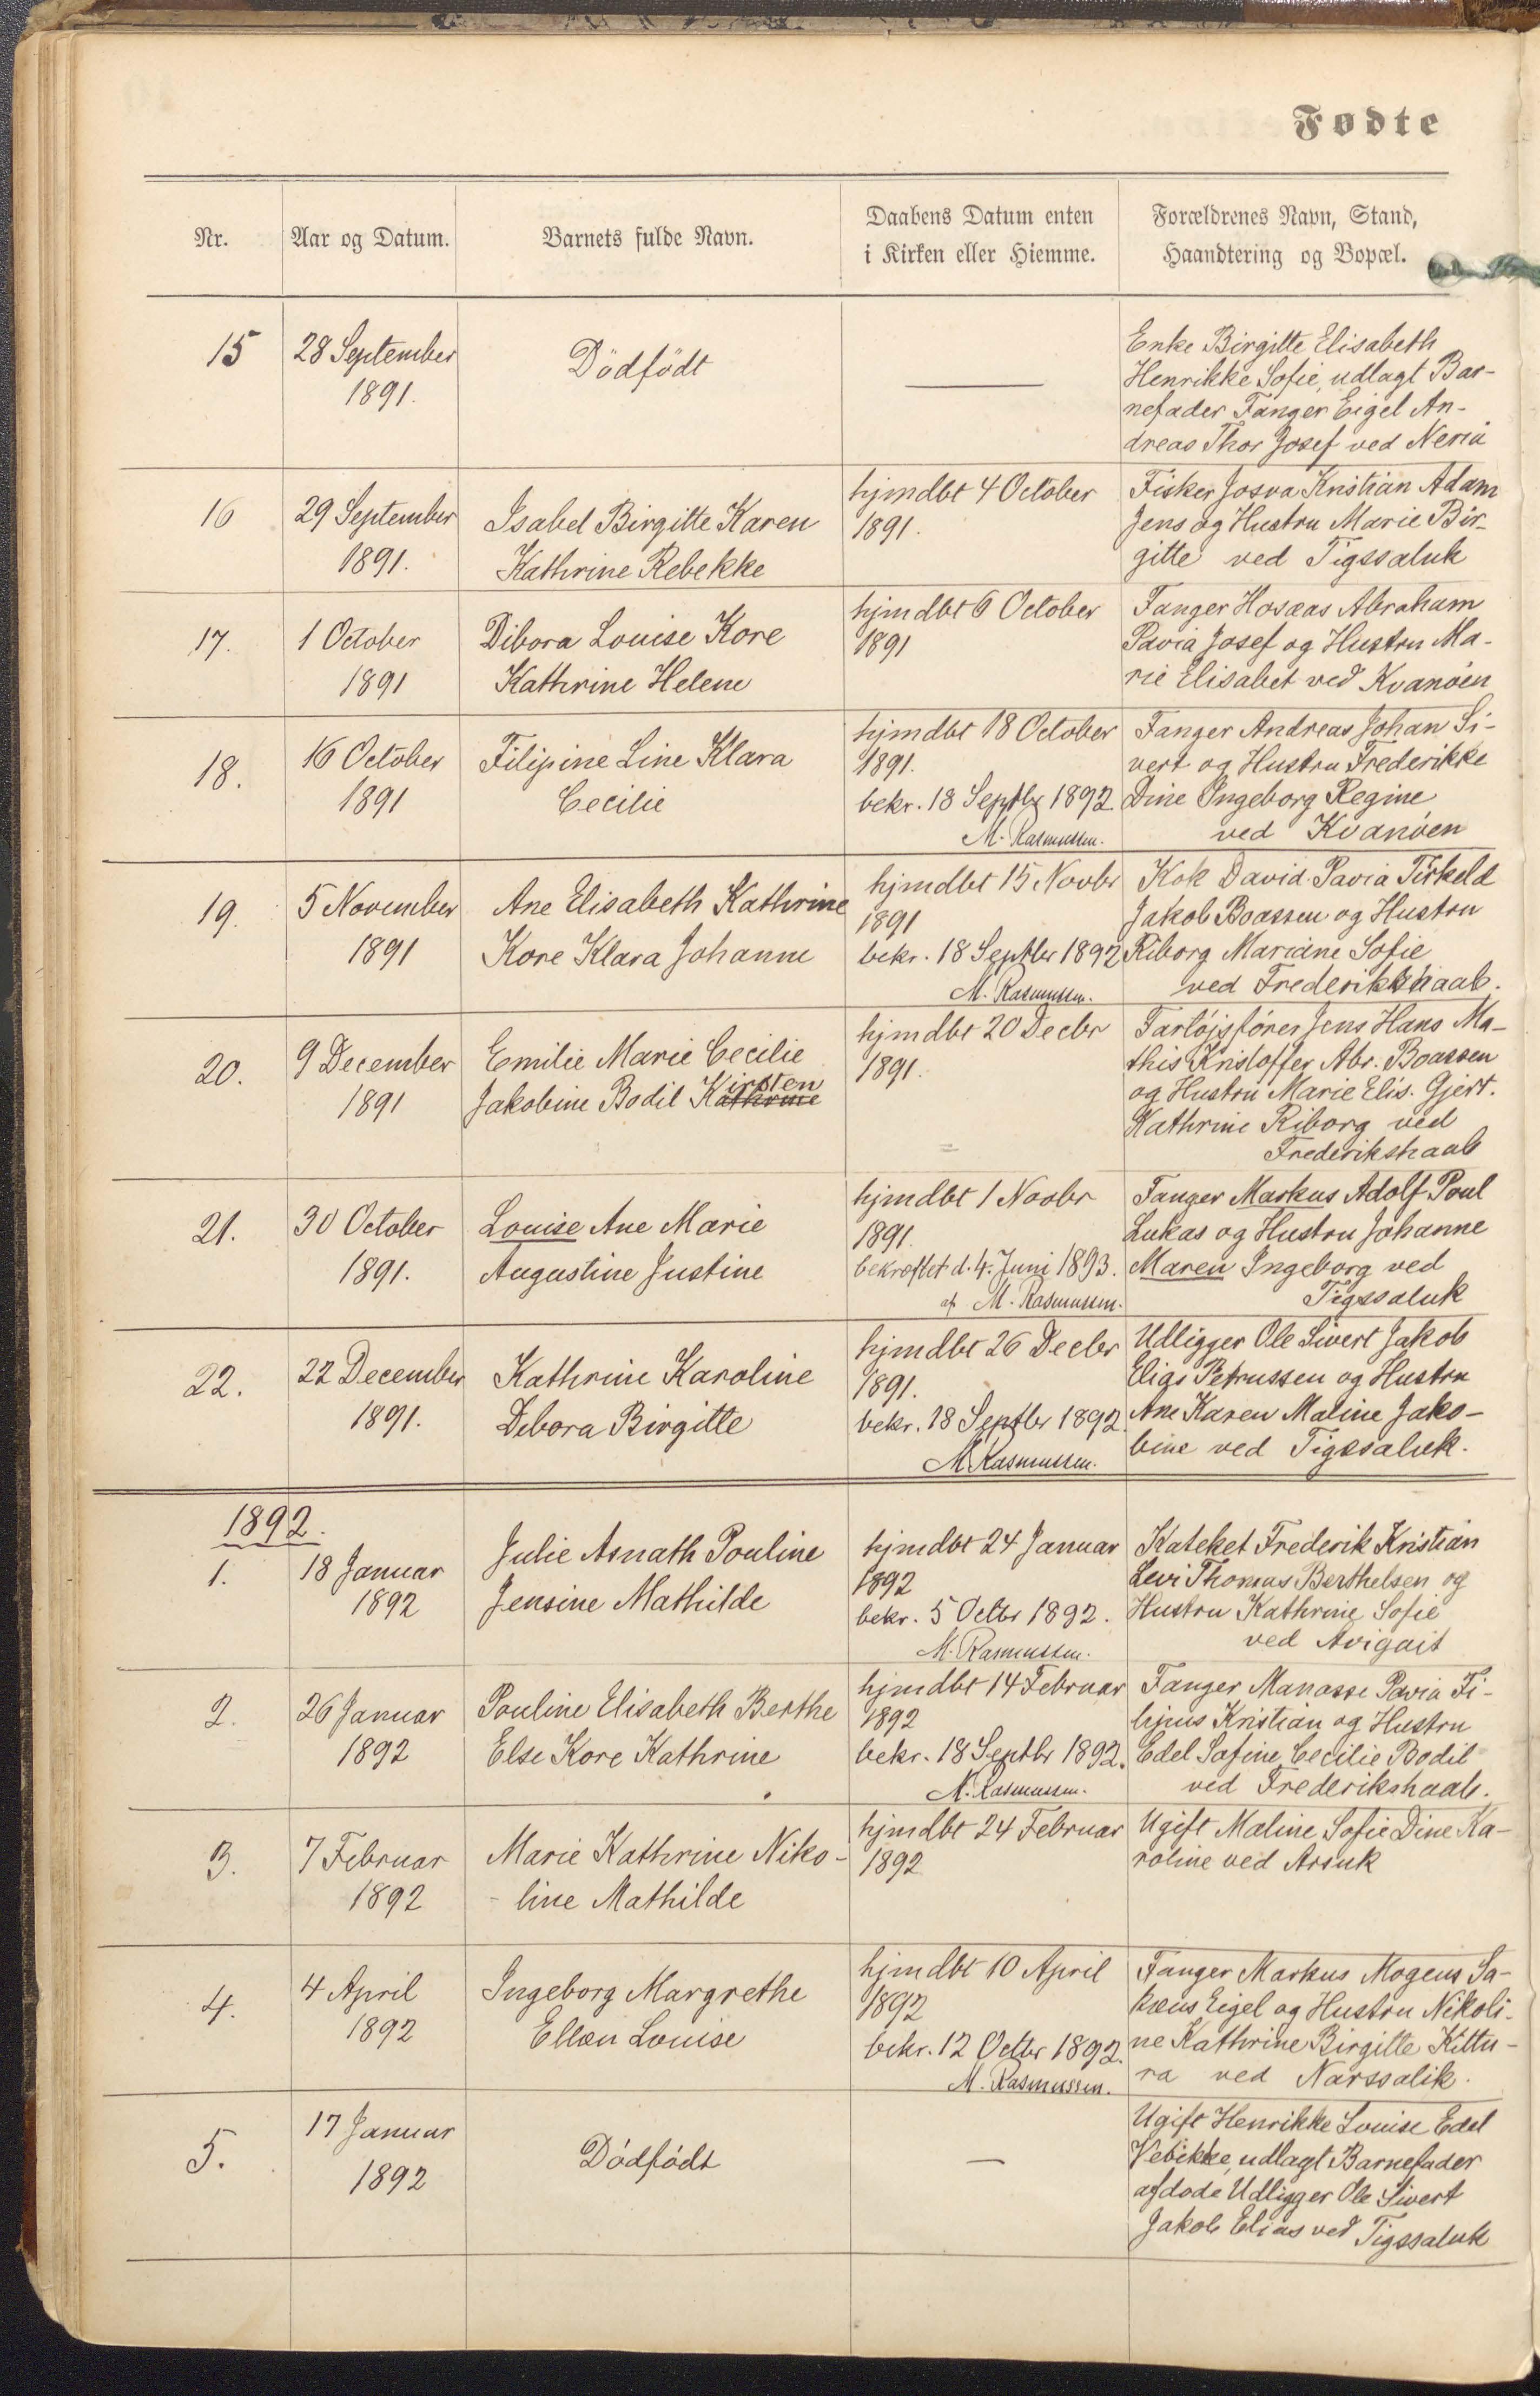 Fødte
Nr. Aar og Datum. Barnets fulde Navn. Daabens Datum enten i Kirken eller Hiemme. Forældrenes Navn, Stand, Haandtering og Bopæl.
15
28 September
1891.
Dödfödt
Enke Birgitte Elisabeth
Henrikke Sofie, udlagt Bar-
nefader Fanger Eigel An-
dreas Thor Josef ved Neria
16
29 September
1891.
Isabel Birgitte Karen
Kathrine Rebekke
hjmdbt 4 October
1891.
Fisker Josva Kristian Adam
Jens og Hustru Marie Bir-
gitte ved Tigssaluk
17.
1 October
1891
Dibora Louise Kore
Kathrine Helene
hjmdbt 6 October
1891
Fanger Hosæas Abraham
Pavia Josef og Hustru Ma-
rie Elisabet ved Kvanöen
18.
16 October
1891
Filipine Line Klara
Cecilie
hjmdbt 18 October
1891.
bekr. 18 Septbr 1892
M. Rasmussen.
Fanger Andreas Johan Si-
vert og Hustru Frederikke
Dine Ingeborg Regine
ved Kvanöen
19.
5 November
1891
Ane Elisabeth Kathrine
Kore Klara Johanne
hjmdbt 15 Novbr
1891
bekr. 18 Septbr 1892
M. Rasmussen.
Kok David Pavia Tirkeld
Jakob Boassen og Hustru
Riborg Mariane Sofie
ved Frederikshaab.
20.
9 December
1891
Emilie Marie Cecilie
Kirsten
Jakobine Bodil Kathrine
hjmdbt 20 Decbr
1891.
Fartøjsfører Jens Hans Ma-
this Kristoffer Abr. Boassen
og Hustru Marie Elis. Gjert.
Kathrine Riborg ved
Frederikshaab
21.
30 October
1891.
Louise Ane Marie
Augustine Justine
hjmdbt 1 Novbr
1891.
bekræftet d. 4. Juni 1893.
af M. Rasmussen.
Fanger Markus Adolf Poul
Lukas og Hustru Johanne
Maren Ingeborg ved
Tigssaluk
22.
22 December
1891.
Kathrine Karoline
Debora Birgitte
hjmdbt 26 Decbr
1891.
bekr. 18 Septbr 1892.
M Rasmussen.
Udligger Ole Sivert Jakob
Elias Petrussen og Hustru
Ane Karen Maline Jako-
bine ved Tigssaluk.
1892.
1.
18 Januar
1892
Julie Asnath Pouline
Jensine Mathilde
hjmdbt 24 Januar
1892
bekr. 5 Octbr 1892.
M. Rasmussen.
Kateket Frederik Kristian
Levi Thomas Berthelsen og
Hustru Kathrine Sofie
ved Avigait
2.
26 Januar
1892
Pouline Elisabeth Berthe
Else Kore Kathrine
hjmdbt 14 Februar
1892
bekr. 18 Septbr 1892.
M. Rasmussen.
Fanger Manasse Pavia Fi-
lipus Kristian og Hustru
Edel Safine Cecilie Bodil
ved Frederikshaab.
3.
7 Februar
1892
Marie Kathrine Niko-
-line Mathilde
hjmdbt 24 Februar
1892
Ugift Maline Sofie Dine Ka-
roline ved Arsuk
4.
4 April
1892
Ingeborg Margrethe
Ellen Louise
hjmdbt 10 April
1892
bekr. 12 Octbr 1892.
M. Rasmussen.
Fanger Markus Mogens Sa-
kæus Eigel og Hustru Nikoli-
ne Kathrine Birgitte Kittu-
ra ved Narssalik.
5.
17 Januar
1892
Dödfödt
Ugift Henrikke Louise Edel
Vebikke, udlagt Barnefader
afdøde Udligger Ole Sivert
Jakob Elias ved Tigssaluk